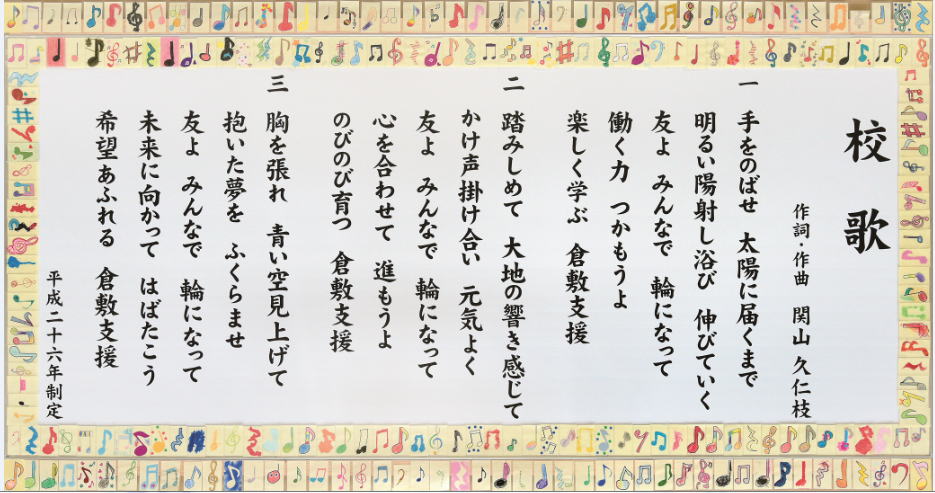 校歌
作詞・作曲 関山 久仁枝
一 手をのばせ 太陽に届くまで
明るい陽射し浴び 伸びていく
友よ みんなで 輪になって
働く力 つかもうよ
楽しく学ぶ 倉敷支援
二 踏みしめて 大地の響き感じて
かけ声掛け合い 元気よく
友よ みんなで 輪になって
心を合わせて 進もうよ
のびのび育つ 倉敷支援
三 胸を張れ 青い空見上げて
抱いた夢を ふくらませ
友よ みんなで 輪になって
未来に向かって はばたこう
希望あふれる 倉敷支援
平成二十六年制定